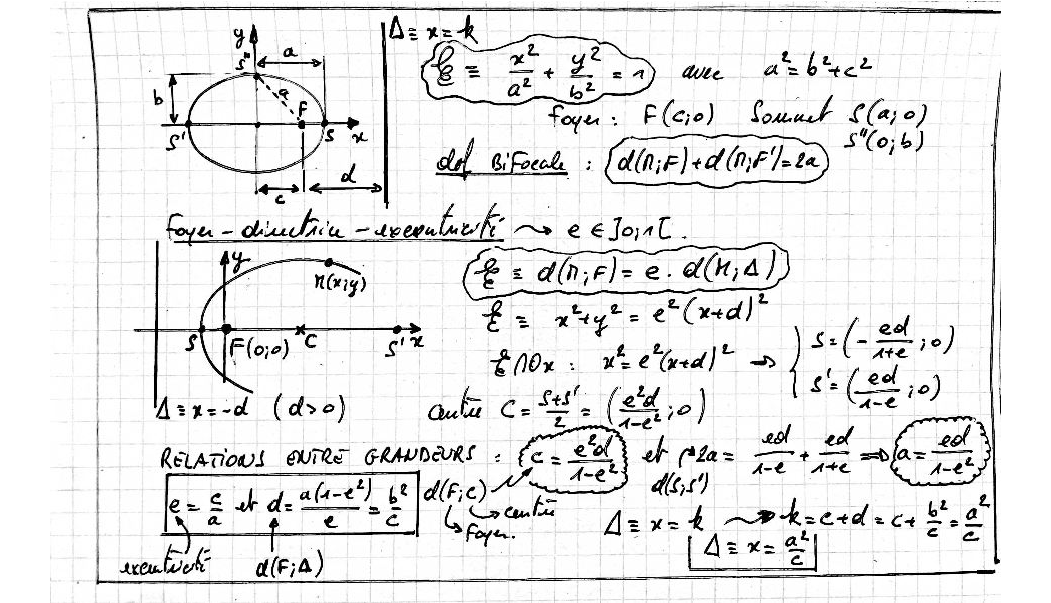 Δ ≡ x = k
y
a
S"
b
a
F
S'
S
x
c
d
ℰ ≡ x²/a² + y²/b² = 1 avec a² = b² + c²
foyer : F(c;0) Sommet S(a;0)
S"(0;b)
déf BiFocale : d(M;F) + d(M;F') = 2a
Foyer - directrice - excentricité ⇝ e ∈ ]0;1[.
y
M(x;y)
S
F(0;0)
C
S'
x
Δ ≡ x = -d (d>0)
ℰ ≡ d(M;F) = e . d(M;Δ)
ℰ ≡ x² + y² = e²(x+d)²
ℰ ∩ Ox : x² = e²(x+d)² ⇒ { S = (- ed/1+e ; 0)
S' = (ed/1-e ; 0)
centre C = S+S'/2 = (e²d/1-e² ; 0)
RELATIONS ENTRE GRANDEURS : c = e²d/1-e² et 2a = ed/1-e + ed/1+e ⇒ a = ed/1-e²
d(S;S')
e = c/a et d = a(1-e²)/e = b²/c
d(F;C)
centre
Foyer.
excentricité
d(F;Δ)
Δ ≡ x = k ⇝ k = c+d = c + b²/c = a²/c
Δ ≡ x = a²/c